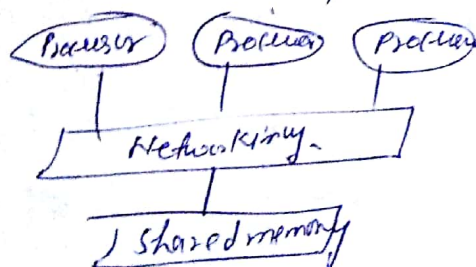 Processor Processor Processor
Networking
Shared memory